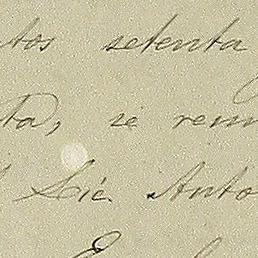 tos setenta
ta, se reun
Lic. Anto